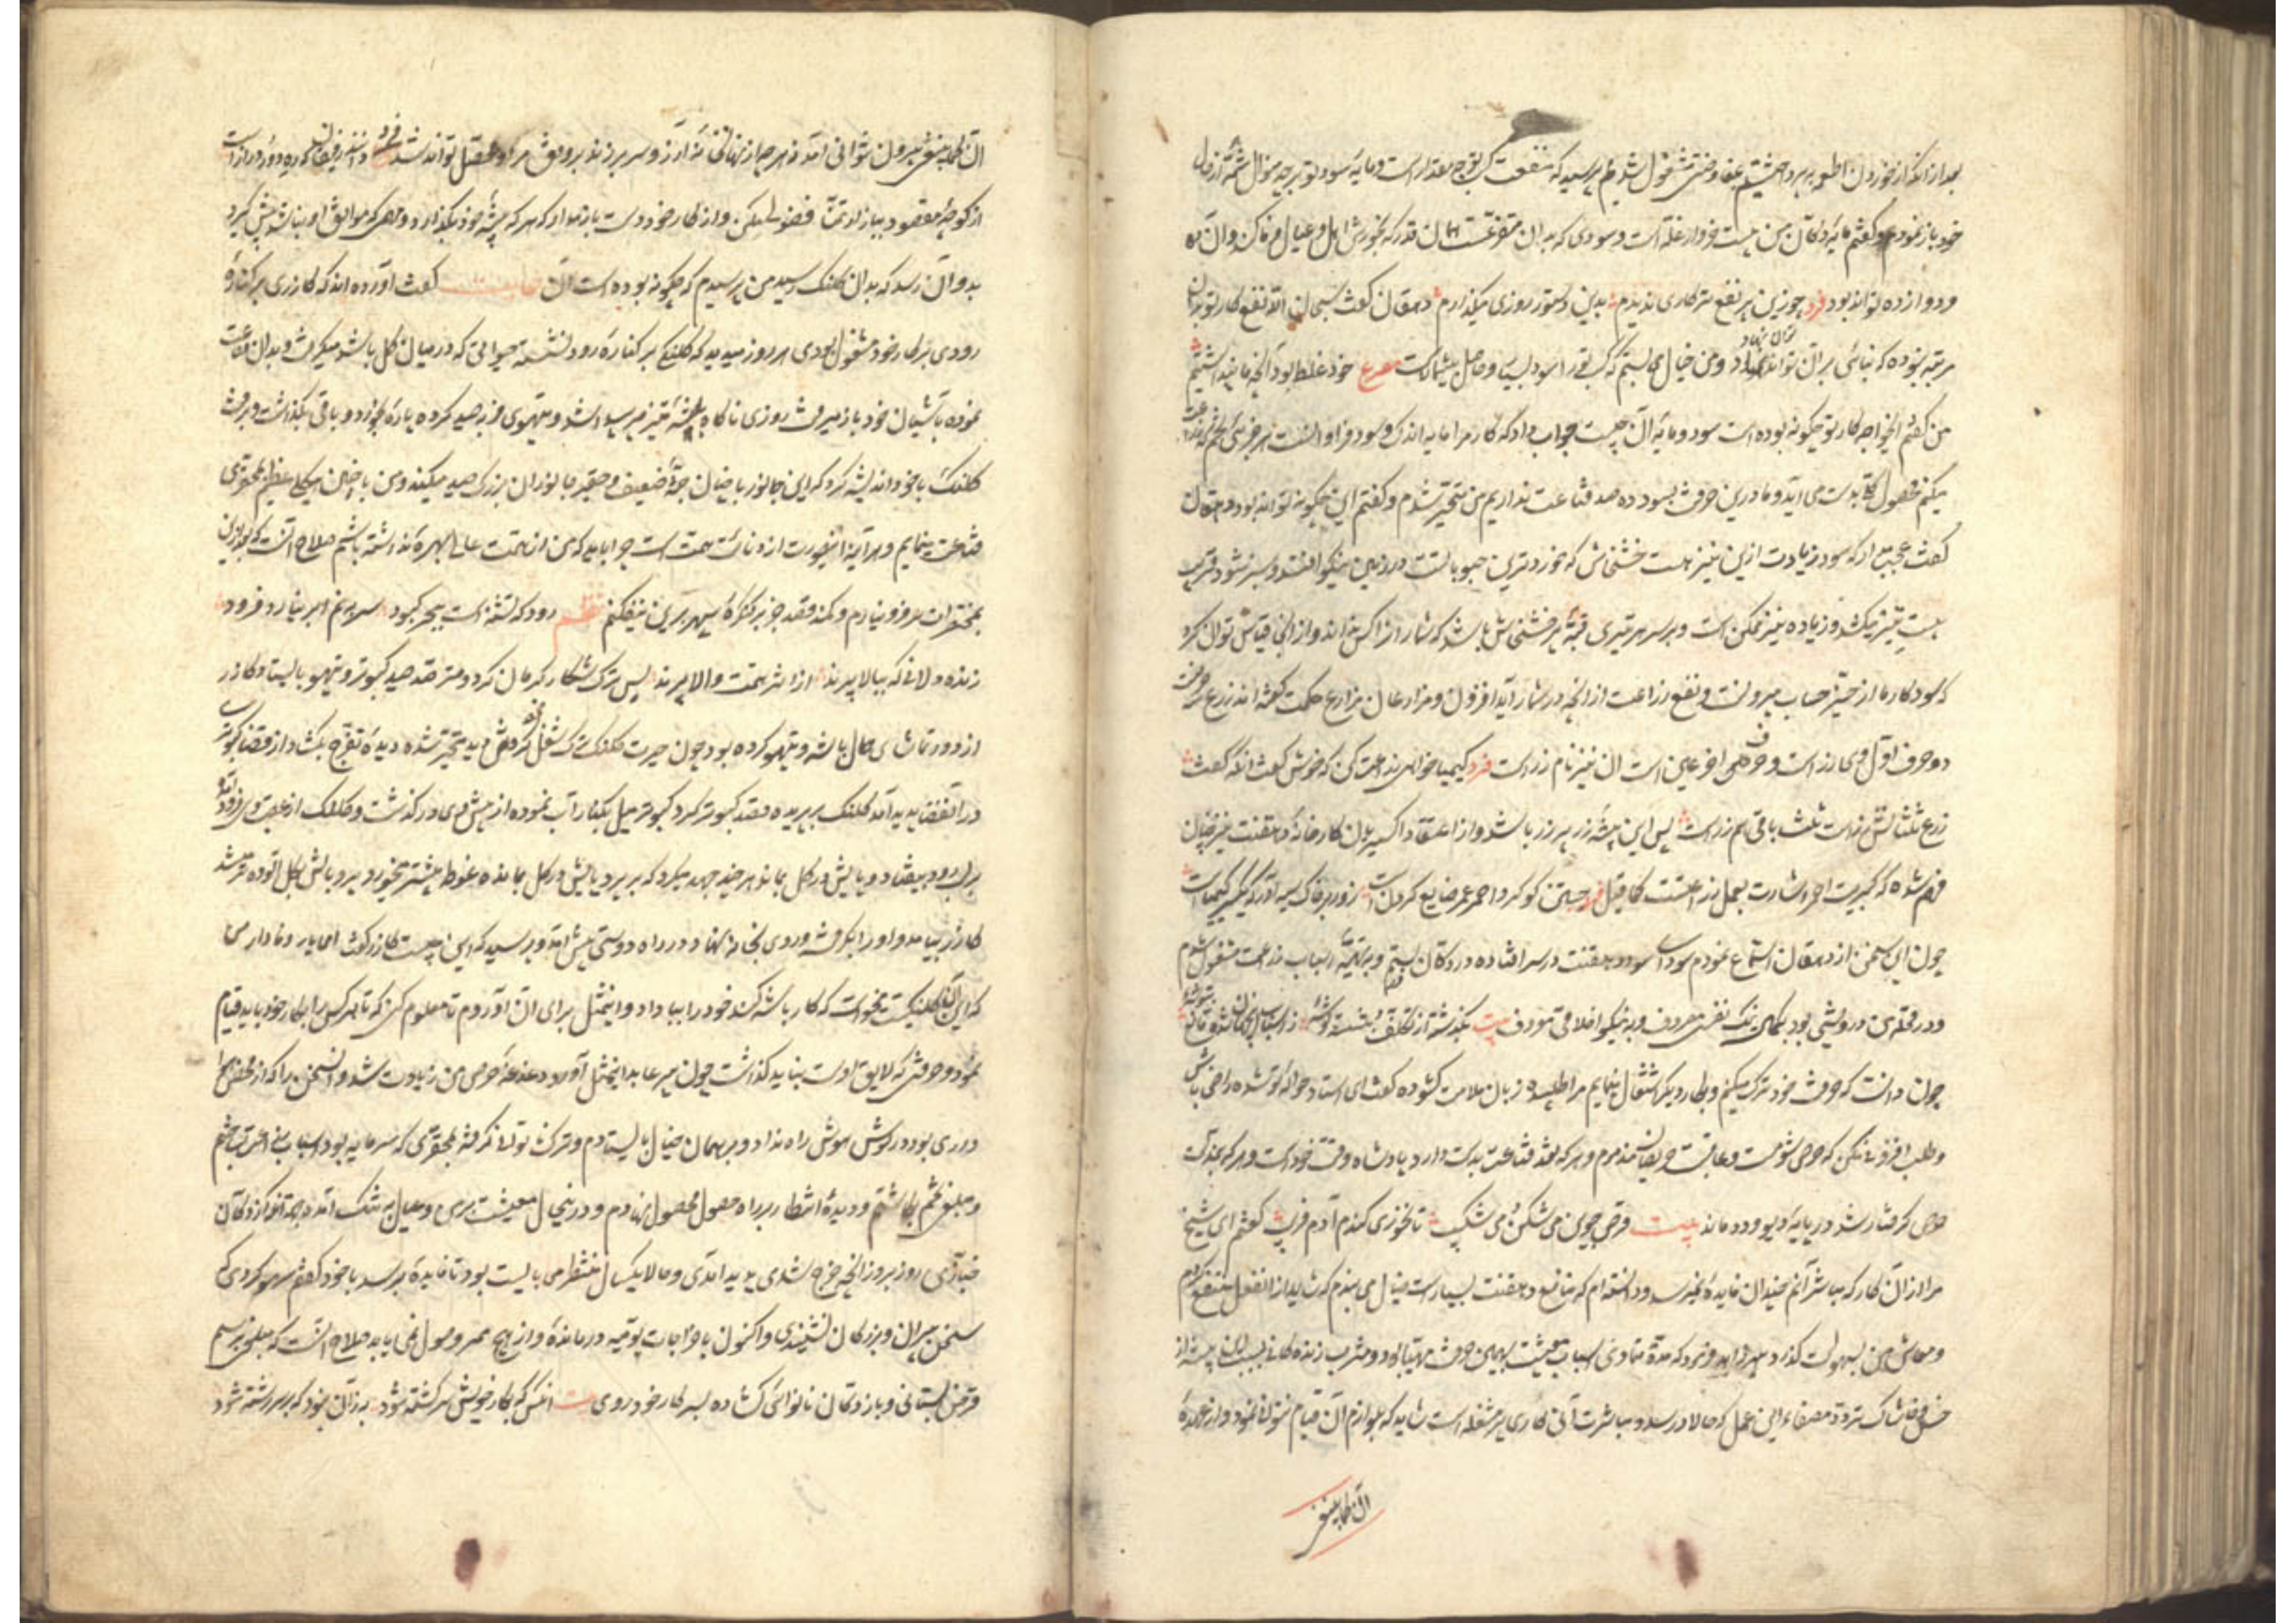 بعد از آنکه از خوردن اطعمه بپرداختیم مفاوضتی مشغول شدیم پرسید که منفعت کسب تو بچه مقدار است و مایه سود تو بر چه منوال شمهٔ از حال
خود باز نمودم و گفتم مایهٔ دکان من بیست خروار غله است و سودی که بدان متفرعست همان قدر که بخورش اهل و عیال من وفا کند و آن ده
و دوازده تواند بود فرد چو زین پر نفع تر کاری ندیدم بدین دستور روزی میگذارم دهقان گفت سبحان الله نفع کار تو بدان
مرتبه نبوده که بنائی بر آن توان نهاد و من خیال می بستم که کسب ترا سود بسیار و حاصل بیشمارست مصرع خود غلط بود آنچه ما پنداشتیم
من گفتم ای خواجه کار تو چگونه بوده است سود و مایهٔ آن چیست جواب داد که کار مرا مایه اندک و سود فراوانست هر جزئی تخم که زراعت
میکنم محصول کلی بدست می آید و ما درین حرفت بسود ده صد قناعت نداریم من متحیر شدم و گفتم این چگونه تواند بود دهقان
گفت عجب مدار که سود زیادت ازین نیز هست خشخاش که خوردترین حبوباتست در زمین نیکو افتد و سبز شود قریب
بیست تیر میکشد و زیاده نیز ممکن است و بر سر هر تیری قبهٔ پر خشخاش باشد که شمار آنرا کس نداند و از اینجا قیاس توان کرد
که سود کار ما از حیز حساب بیرونست و نفع زراعت از آنچه در شمار آید افزون و مزارعان مزارع حکمت گفته اند زرع سه حرفست
دو حرف اول وی زر است و حرف آخر عین است آن نیز نام زر است فرد کیمیا خواهی زراعت کن که خوش گفت آنکه گفت
زرع ثلثانش زر است ثلث باقی هم زر است پس این پیشهٔ زر بر زر باشد و از اعتقاد اکسیریان کارخانهٔ دهقنت چنین
فهم شده که کبریت احمر اشارت بعمل زراعتست کما قیل فرد جستن گوگرد احمر عمر ضایع کردن است روی بر خاک سیه آور که یکسر کیمیاست
چون این سخن از دهقان استماع نمودم سودای سود دهقنت در سر افتاده در دکان بستم و بتهیهٔ اسباب زراعت مشغول شدم
و در محلهٔ من درویشی بود بکمال نیک نفسی معروف و به نیکو اخلاقی موصوف بیت بگذشته از تکلف بنشسته گوشهٔ ز اسباب این جهان شده قانع بتوشهٔ
چون دانست که حرفت خود ترک میکنم و بکار دیگر اشتغال مینمایم مرا طلبیده زبان ملامت گشوده گفت ای استاد بدانچه حوالهٔ تو شده راضی باش
و طلب افزونی مکن که حرص شومست و عاقبت حریصان مذموم و هر که نقد قناعت بدست دارد پادشاه وقت خود است و هر که بمذلت
حرص گرفتار شد در پایهٔ دیو و دد ماند بیت قرص جوین می شکن و می شکیب تا نخوری گندم آدم فریب گفتم ای شیخ
مرا از آن کار که مباشر آنم چندان فایده نمیرسد و دانسته ام که منافع دهقنت بسیار است خیال می بندم که شاید از آن شغل منتفع گردم
و معاش من بسهولت گذرد پیر زاهد فرمود که مدة متمادی اسباب معیشت بهمین حرفت مهیا بود و مشرب زندگانی بسبب این پیشه از
خس و خاشاک تردد مصفا و این عمل که حالا در صدد مباشرت آنی کاری پر مشغله است شاید که بلوازم آن قیام نتوانی نمود و از عهدهٔ
آن کما ینبغی
آن کما ینبغی بیرون نتوانی آمد نه هر چه از نهانخانهٔ آرزو سر بر زند بر وفق مراد مقبل تواند شد فرد
از کوچهٔ مقصود ببازار تمنا فضولی مکن و از کار خود دست باز مدار که هر که پیشهٔ خود بگذارد و مهمی که موافق او نباشد پیش گیرد
بدو آن رسد که بدان کلنک رسید من پرسیدم که چگونه بوده است آن حکایت گفت آورده اند که گازری بر کنارهٔ
رودی بکار خود مشغول بودی هر روز میدید که کلنگی بر کنارهٔ رود نشسته حیواناتی که در میان گل باشد میگرفت و بدان قناعت
نموده بآشیان خود باز میرفت روزی ناگاه باشهٔ تیز پر پیدا شد و تیهوی فربه صید کرده پارهٔ بخورد و باقی بگذاشت و برفت
کلنک با خود اندیشه کرد که این جانور با چنان جثهٔ ضعیف و حقیر جانوران بزرگ صید میکند و من با چنین هیکلی عظیم بمحقری
قناعت مینمایم و هر آینه این صورت از دنائت همت است چرا باید که من از همت عالی بهره نداشته باشم صلاح آنست که بعد ازین
بمحقرات سر فرو نیارم و کمند قصد جز بر کنگرهٔ سپهر برین نیفکنم نظم رود که تشنه است ببحر کبود سر نم ابر نیارد فرود
زنده دلانی که ببالا پرند از اثر همت والا پرند پس ترک شکار کرمان کرد و مترصد صید کبوتر و تیهو بایستاد گازر
از دور تماشای حال باشه و تیهو کرده بود چون حیرت کلنک و ترک شغل کردنش بدید متحیر شده دیدهٔ تفرج بگشاد از قضا کبوتری
در آن فضا پدید آمد کلنک بپریده قصد کبوتر کرد کبوتر میل بکنار آب نموده از پیش وی در گذشت و کلنک از عقب وی فرود آمده
بر لب رود بیفتاد و پایش در گل بماند هر چند جهد میکرد که بپرد پایش در گل بمانده غوطه بیشتر میخورد و پر و بالش بگل آلوده تر میشد
گازر بیامد و او را بگرفت و روی بخانه نهاد در راه دوستی پیش آمد و پرسید که این چیست گازر گفت
که این کلنگیست میخواست که کار باشه کند خود را بباد داد و این مثل برای آن آوردم تا معلوم کنی که تا هر کس را بکار خود باید قیام
نمود و حرفتی که لایق اوست بباید گذاشت چون پیر عابد این مثل آورد دغدغهٔ حرص من زیادت شد و آن سخن را که از محض
بود در گوش هوش راه نداد و بر همان خیال بایستادم و ترک نانوائی گرفته بمحقری که سرمایه بود اسباب زراعت بساختم
و مبلغی تخم بکاشتم و دیدهٔ انتظار بر راه حصول محصول نهادم و درین حال معیشت بر من و عیال من تنگ آمد بجهت آنکه از دکان
خبازی روز بروز آنچه خرج شدی پدید آمدی و حالا یکسال منتظر می بایست بود تا فایدهٔ برسد با خود گفتم سهو کردی که
سخن پیران و بزرگان نشنیدی و اکنون باخراجات یومیه درماندهٔ و از هیچ ممر وصولی نمی یابد صلاح آنست که مبلغی برسم
قرض بستانی و باز دکان نانوائی گشاده بسر کار خود روی بیت آنکس که ز کار خویش سرگشته شود به زان نبود که بر سر رشته شود